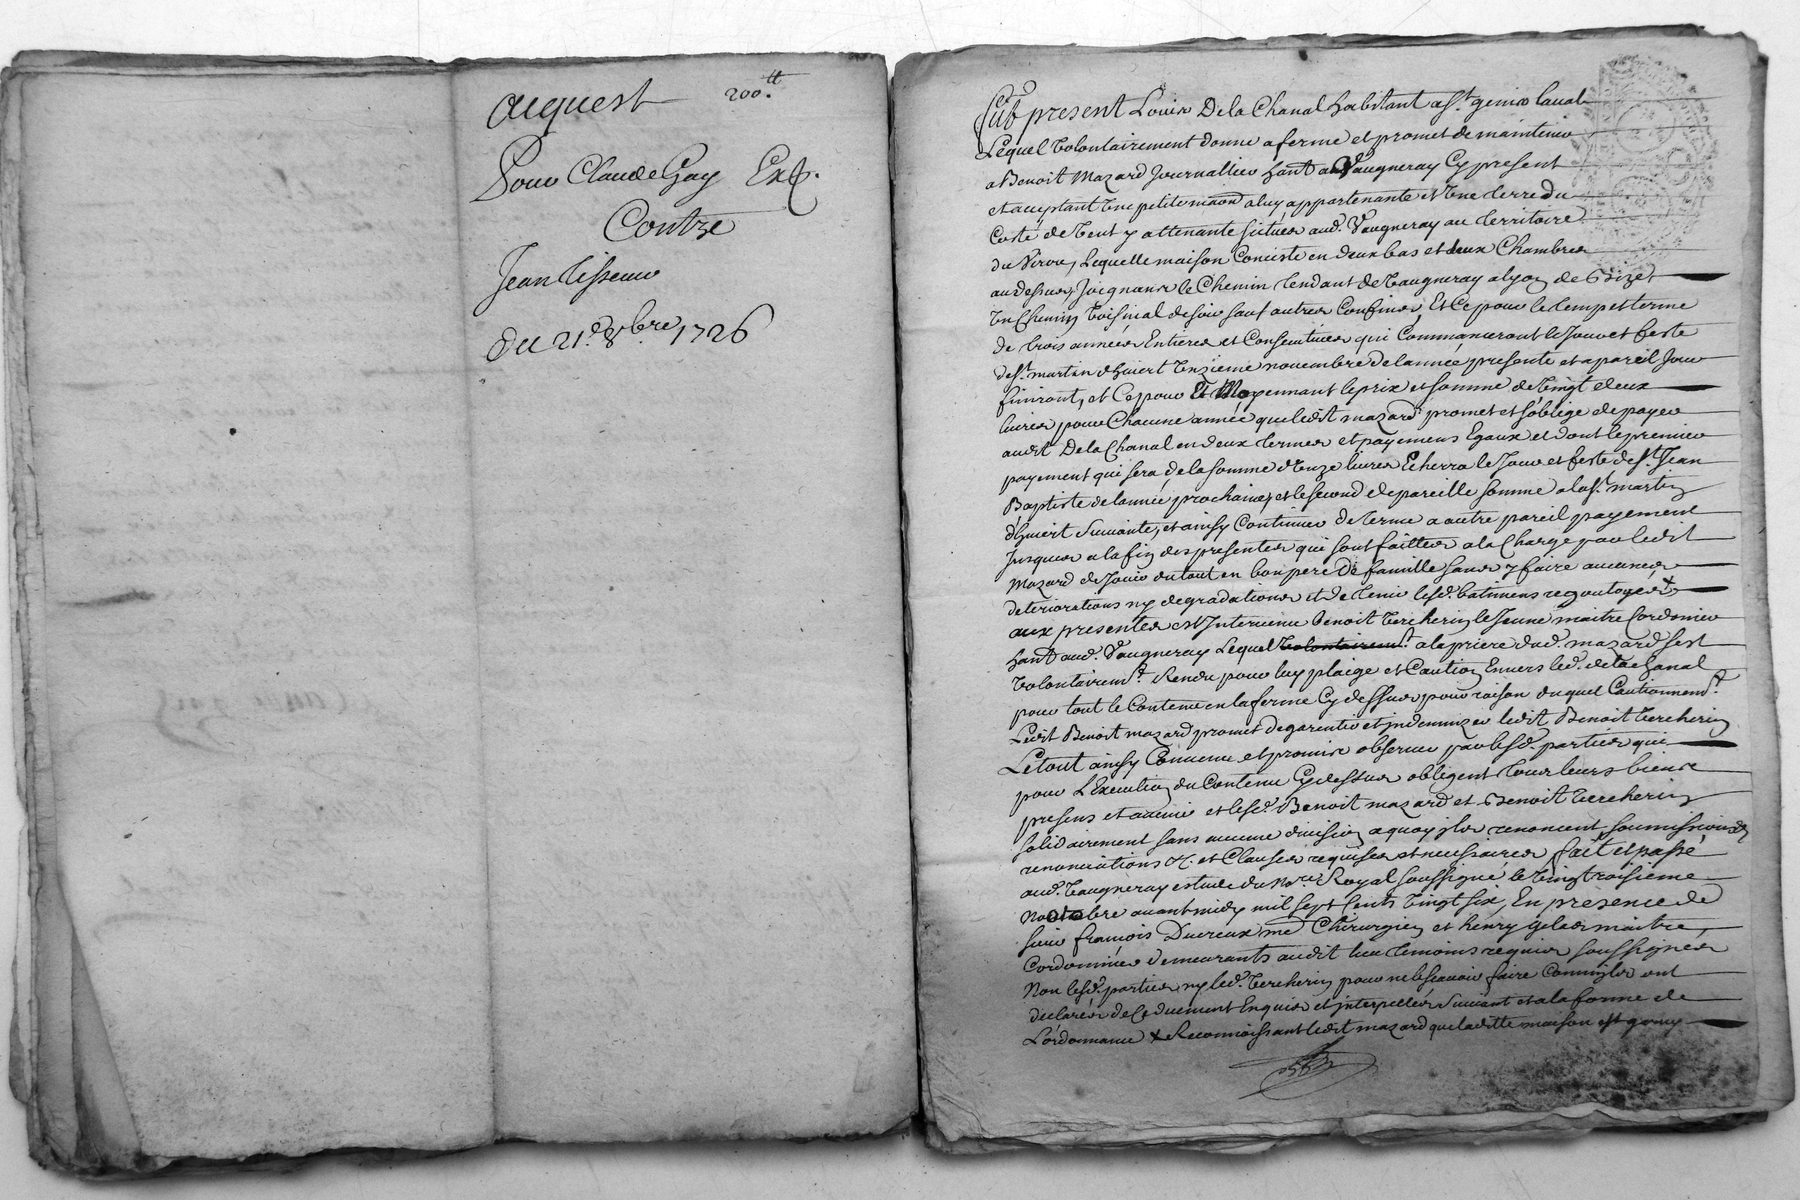 acquest 200.tt
Pour Claude Gay Exp.
Contre
Jean Tisseur
Du 21.e 8bre. 1726
fut present Louis De la Chanal habitant a St. genis laval
Lequel volontairement donne a ferme et promet de maintenir
a Benoit Mazard Journallier hant. a Vaugneray Cy present
et acceptant une petite maon a luy appartenante et une terre du
Costé de vent y attenante situées aud. Vaugneray au territoire
du Lequelle maison Conciste en deux bas et deux Chambres
au dessus, Joignans le Chemin tendant de Vaugneray a lyon de bize
un Chemin voisinal de soir sauf autres Confins, Et Ce pour le temps et terme
de trois années Entieres et Consecutives qui Commanceront le Jour et feste
de St. martin d'hivert unzieme novembre de lannée presente et a pareil Jour
finiront, et Ce pour Et Moyennant le prix et somme de vingt deux
livres pour Chacune année que ledit mazard promet et s'oblige de payer
audit De la Chanal en deux termes et payemens Egaux et dont le premier
payement qui sera de la somme d'unze livres Echerra le Jour et feste de St. Jean
Baptiste de lannée prochaine, et le second de pareille somme a la St. martin
d'hivert Suivante, et ainsy Continuer de terme a autre pareil payement
Jusques a la fin des presentes qui sont faittes a la Charge par ledit
Mazard de Jouir du tout en bon pere De famille sans y faire aucunes
deteriorations ny degradations et de tenir lesd. batimens regoutoyés
aux presentes est Intervenu benoit Vercherin le Jeune maitre Cordonier
hant. aud. Vaugneray Lequel volontairemt. a la priere dud. mazard s'est
volontairemt. Rendu pour luy plaige et Caution Envers led. de la Chanal
pour tout le Contenu en la ferme Cy dessus pour raison duquel Cautionnemt.
Ledit Benoit mazard promet de garentir et jndemnizer ledit Benoit Vercherin
Le tout ainsy Convenu et promis observer par lesd. parties qui
pour L'Execution du Contenu Cy dessus obligent tour leurs biens
presens et avenir et lesd. Benoit mazard et Benoit Vercherin
solidairement sans aucune division a quoy jls renoncent, soumissions
renonciations &. et Clauses requises et necessaires fait et passé
aud. Vaugneray estude du Nore. Royal soussigné le vingtroisieme
octobre avant midy mil sept Cents vingt six, En presence de
sieur françois Ducreux me Chirurgien et henry maitre
Cordonnier demeurants audit lieu temoins requis soussignes
Non lesd. parties, ny led. Vercherin pour ne le scavoir faire Comme ont
declarés de Ce duement Enquis et jnterpellés suivant et a la forme de
L'ordonnance Reconnoissant ledit mazard que laditte maison est